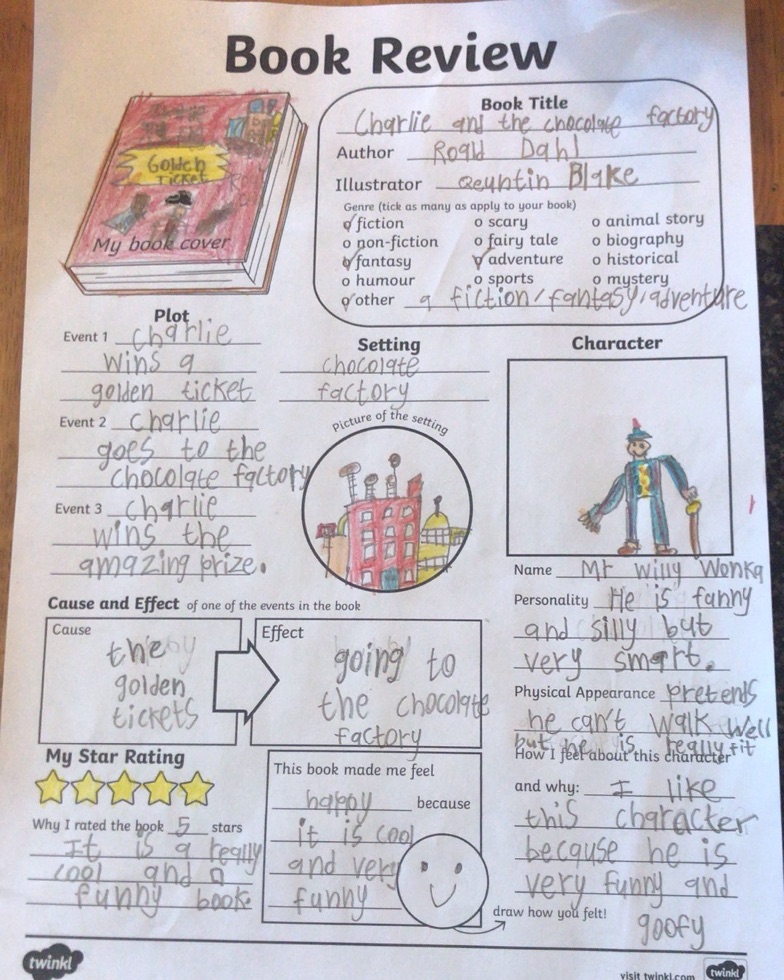 Book Review
Golden
Ticket
My book cover
Book Title
Charlie and the chocolate factory
Author Roald Dahl
Illustrator Qeuntin Blake
Genre (tick as many as apply to your book)
o fiction o scary o animal story
o non-fiction o fairy tale o biography
o fantasy o adventure o historical
o humour o sports o mystery
o other a fiction/fantasy/adventure
Plot
Event 1 Charlie
wins a
golden ticket
Event 2 Charlie
goes to the
chocolate factory
Event 3 Charlie
wins the
amazing prize.
Setting
chocolate
factory
Picture of the setting
Character
Name Mr Willy Wonka
Personality He is funny
and silly but
very smart.
Physical Appearance pretends
he can't walk well
but he is really fit
How I feel about this character
and why: I like
this character
because he is
very funny and
goofy
Cause and Effect of one of the events in the book
Cause
the
golden
tickets
Effect
going to
the chocolate
factory
My Star Rating
Why I rated the book 5 stars
It is a really
cool and a
funny book.
This book made me feel
happy because
it is cool
and very
funny
draw how you felt!
twinkl
visit twinkl.com
twinkl